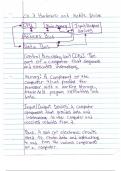 Ch. 3 Hardware and Mobile Device
CPU Main memory Input/Output Devices
Address Bus
Data Bus
Central Processing Unit (CPU): The
part of a computer that represents
and executes instructions
Memory: A component of the
computer that provides the
processor with a working storage,
area to hold program instructions and
data.
Input/Output Devices: A computer
component that provides data and
instructions to the computer and
receives results from it
Bus: A set of electronic circuits
used to route data and instructions
to and from the various components
of a computer